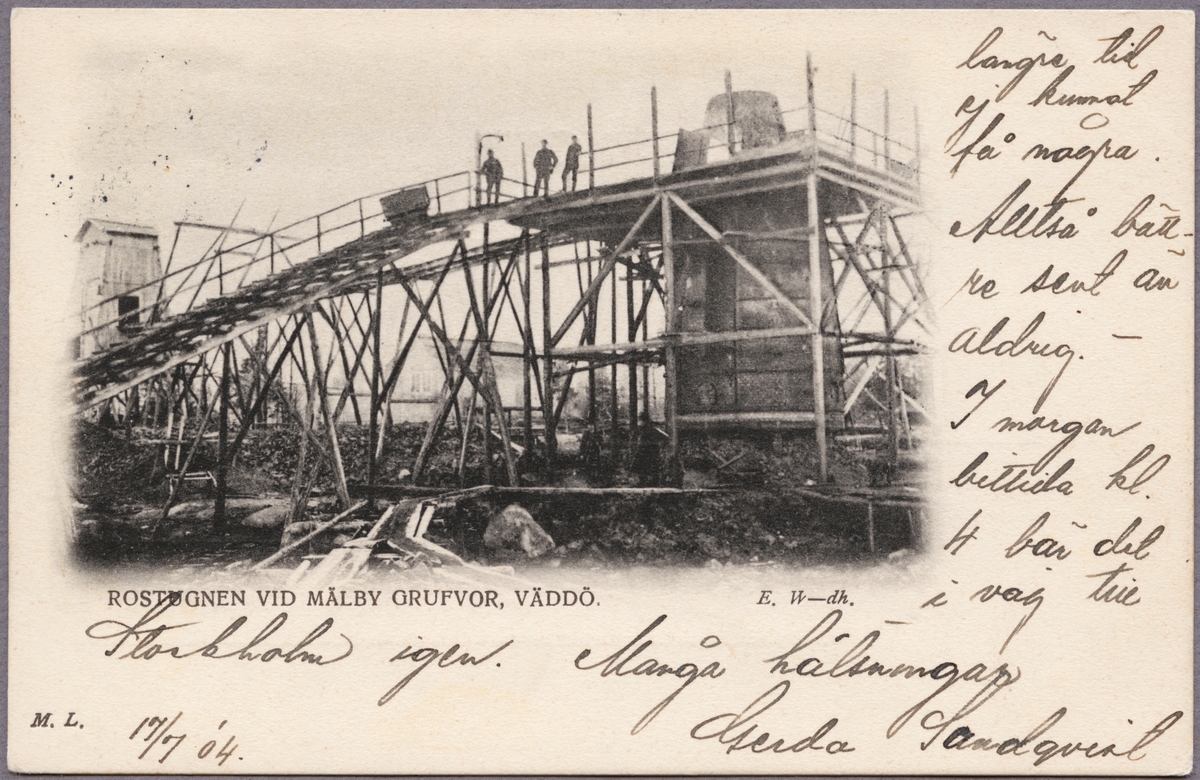 längre tid
ej kunnat
få några.
Alltså bätt-
re sent än
aldrig. –
I morgon
bittida kl.
4 bär det
i väg till
ROSTUGNEN VID MÄLBY GRUFVOR, VÄDDÖ.
E. W—dh.
Stockholm igen. Många hälsningar
Gerda Sandqvist
M. L.
17/7 '04.